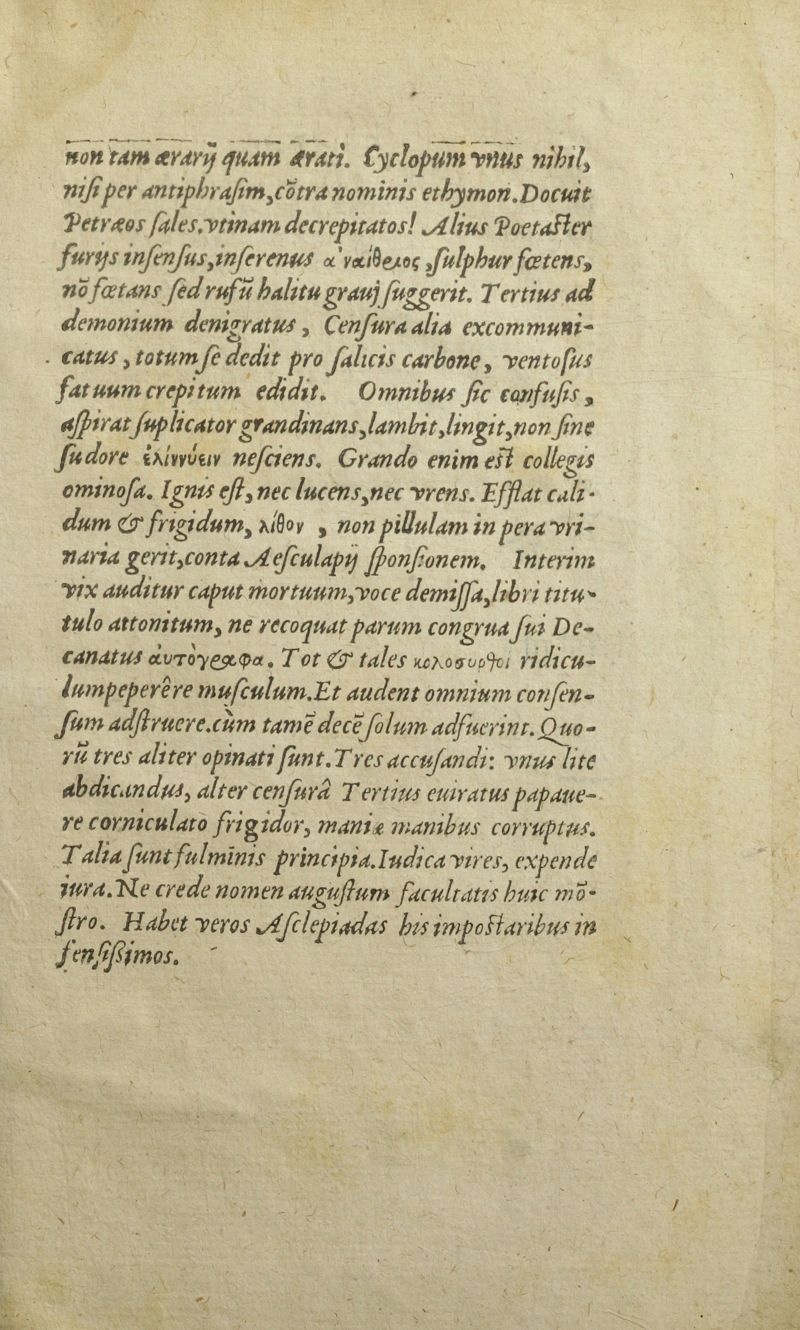 non tam ærarij quam ærati. Cyclopum vnus nihil,
nisi per antiphrasim, cõtra nominis ethymon. Docuit
Petræos sales, vtinam decrepitatos! Alius Poetaster
furijs infensus, inferenus ἀναίθελος, sulphur fœtens,
nõ fœtans sed rufũ halitu graui suggerit. Tertius ad
demonium denigratus, Censura alia excommuni-
catus, totum se dedit pro salicis carbone, ventosus
fatuum crepitum edidit. Omnibus sic confusis,
aspirat suplicator grandinans, lambit, lingit, non sine
sudore ἐλιννύειν nesciens. Grando enim est collegis
ominosa. Ignis est, nec lucens, nec vrens. Efflat cali-
dum & frigidum, λίθον, non pillulam in pera vri-
naria gerit, conta Aesculapij sponsionem. Interim
vix auditur caput mortuum, voce demissa, libri titu-
tulo attonitum, ne recoquat parum congrua sui De-
canatus ἀυτόγραφα. Tot & tales ridicu-
lum peperêre musculum. Et audent omnium consen-
sum adstruere. cùm tamẽ decẽ solum adfuerint. Quo-
rũ tres aliter opinati sunt. Tres accusandi: vnus lite
abdicandus, alter censurâ Tertius euiratus papaue-
re corniculato frigidor, maniæ manibus corruptus.
Talia sunt fulminis principia. Iudica vires, expende
iura. Ne crede nomen augustum facultatis huic mõ-
stro. Habet veros Asclepiadas his impostaribus in
fensissimos.